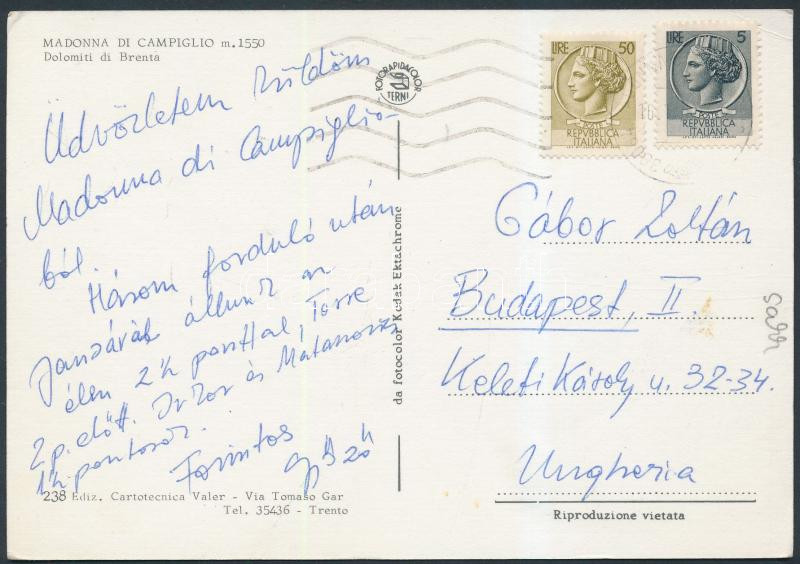 MADONNA DI CAMPIGLIO m.1550
Dolomiti di Brenta
Üdvözletem küldöm
Madonna di Campiglio-
ból.
Három forduló után
Jansával állunk az
élen 2½ ponttal, Torre
2 p. előtt. Ivkov és Matanovic
1½ pontosok.
Forintos
Győző
238 Ediz. Cartotecnica Valer - Via Tomaso Gar
Tel. 35436 - Trento
FOTORAPIDACOLOR
TERNI
da fotocolor Kodak Ektachrome
LIRE 50
POSTE
REPVBBLICA
ITALIANA
LIRE 5
POSTE
REPVBBLICA
ITALIANA
Gábor Zoltán
Budapest, II.
Keleti Károly u. 32-34.
Ungheria
Riproduzione vietata